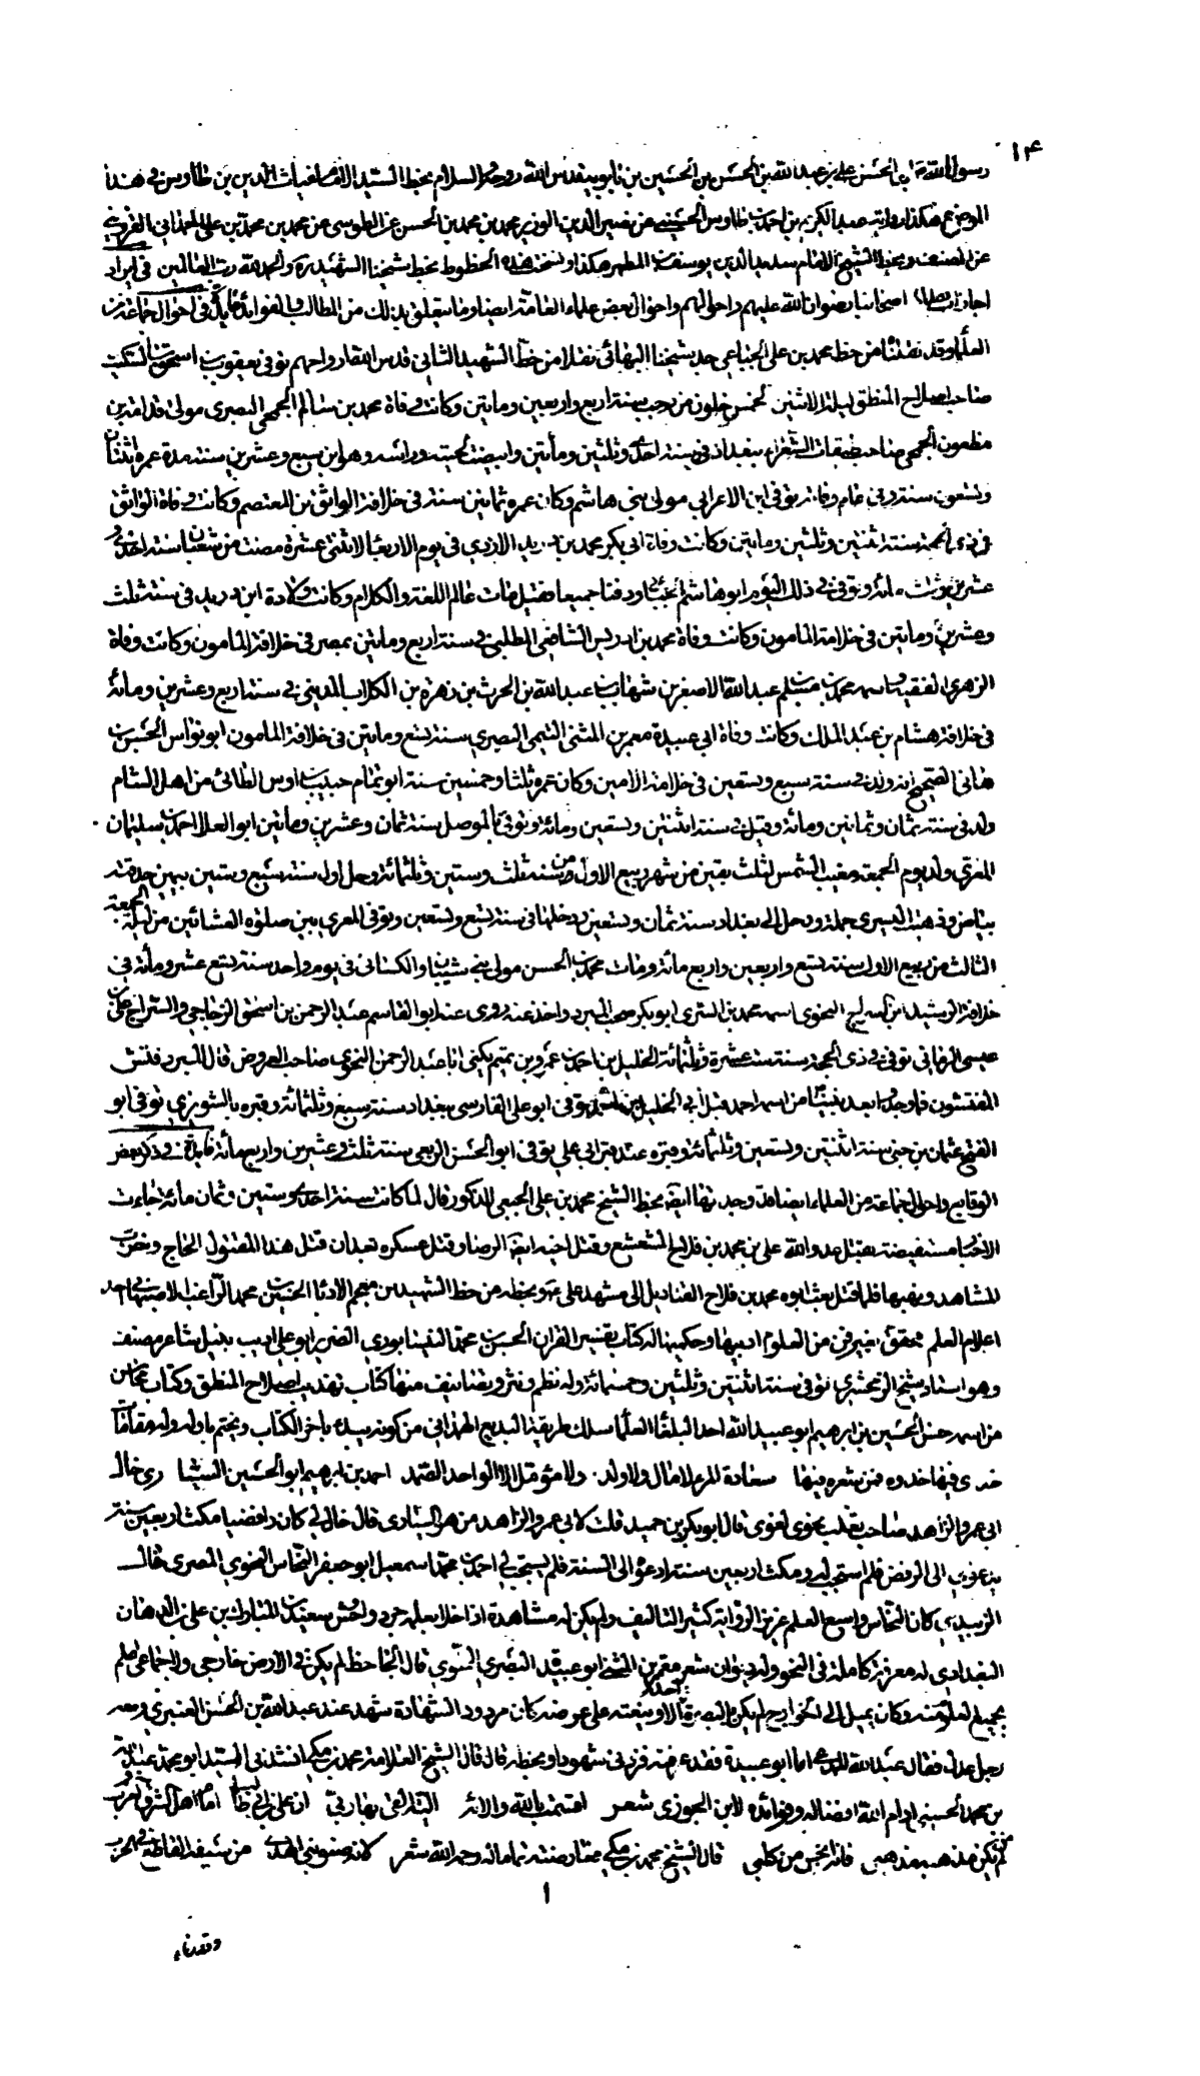 ١٤
رسول الله ابي الحسن علي بن عبيد الله بن الحسن بن الحسين بن بابويه قدس الله روحه والسلام بخط السيد غياث الدين بن طاوس في هذا
الموضع هكذا رواية عبد الكريم بن احمد بن طاوس الحسني عن نصير الدين الوزير محمد بن محمد بن الحسن الطوسي عن محمد بن محمد بن علي الحمداني القزويني
عن المصنف وبخط الشيخ الامام سديد الدين يوسف بن المطهر هكذا ونسخت هذه الخطوط بخط شيخنا الشهيد ره والحمد لله رب العالمين في ايراد
اصحابنا رضوان الله عليهم واحوالهم واحوال بعض علماء العامة ايضا وما يتعلق بذلك من المطالب والفوائد فايدة في احوال جماعة من
العلماء وقد نقلنا من خط محمد بن علي الجباعي جد شيخنا البهائي نقلا من خط الشهيد الثاني قدس الله ارواحهم توفي يعقوب بن اسحق السكيت
صاحب اصلاح المنطق ليلة الاثنين لخمس خلون من رجب سنة اربع واربعين ومايتين وكانت وفاة محمد بن سالم الجمحي البصري مولى قدامة بن
مظعون الجمحي صاحب طبقات الشعراء ببغداد في سنة احدى وثلثين ومأتين وابيضت لحيته وراسه وهو ابن سبع وعشرين سنة مدة عمره اثنتان
وتسعون سنة وفي عام وفاته توفي ابن الاعرابي مولى بني هاشم وكان عمره ثمانين سنة في خلافة الواثق بن المعتصم وكانت وفاة الواثق
في ذي الحجة سنة اثنتين وثلثين ومايتين وكانت وفاة ابي بكر محمد بن دريد الازدي في يوم الاربعا لاثنتي عشرة مضت من شعبان سنة احدى و
عشرين وثلث مائة وتوفي في ذلك اليوم ابو هاشم الجبائي ودفنا جميعا فقيل مات عالم اللغة والكلام وكانت ولادة ابن دريد في سنة ثلث
وعشرين ومايتين في خلافة المامون وكانت وفاة محمد بن ادريس الشافعي المطلبي في سنة اربع ومايتين بمصر في خلافة المامون وكانت وفاة
الزهري الفقيه واسمه محمد بن مسلم عبد الله الاصغر بن شهاب بن عبد الله بن الحرث بن زهرة بن الكلاب المديني في سنة اربع وعشرين ومائة
في خلافة هشام بن عبد الملك وكانت وفاة ابي عبيدة معمر بن المثنى التيمي البصري سنة تسع ومايتين في خلافة المامون ابو نواس الحسن بن
هاني الصحيح انه ولد في سنة سبع وتسعين في خلافة الامين وكان عمره ثلثا وخمسين سنة ابو تمام حبيب بن اوس الطائي من اهل الشام
ولد في سنة ثمان وثمانين ومائة وقيل في سنة اثنتين وتسعين ومائة وتوفي بالموصل سنة ثمان وعشرين ومايتين ابو العلا احمد بن سليمان
المعري ولد يوم الجمعة مغيب الشمس لثلث بقين من شهر ربيع الاول من سنة ثلث وستين وثلثمائة وحل اوله سنة سبع وستين بيمين حدقته
بياض وفي هذا اليسرى جملة ورحل الى بغداد سنة ثمان وتسعين ودخلها في سنة تسع وتسعين وتوفي المعري بين صلوة العشائين من ليلة الجمعة
الثالث من ربيع الاول سنة تسع واربعين واربع مائة ومات محمد بن الحسن مولى بني شيبان والكسائي في يوم واحد سنة تسع عشر ومأتة في
خلافة الرشيد ابن السراج النحوي اسمه محمد بن السري ابو بكر صحب المبرد واخذ عنه روى عنه ابو القاسم عبد الرحمن بن اسحق الزجاجي والسراج علي بن
عيسى الرماني توفي في ذي الحجة سنة ست عشرة وثلثمائة الخليل بن احمد بن عمرو بن تميم يكنى ابا عبد الرحمن النحوي صاحب العروض قال المبرد فتش
المفتشون فما وجدوا بعد نبينا من اسمه احمد قبل ابي الخليل توفي ابو علي الفارسي ببغداد سنة سبع وثلثمائة وقبره بالشونيزي توفي ابو
الفتح عثمان بن جني سنة اثنتين وتسعين وثلثمائة وقبره عند قبر ابي علي توفي ابو الحسن الربعي سنة ثلث وعشرين واربع مائة فايدة في ذكر بعض
الوقايع واحوال جماعة من العلماء ايضا قد وجدتها ايضا بخط الشيخ محمد بن علي الجبعي المذكور قال لما كانت سنة احدى وستين وثمان مائة جاءت
الاخبار مستفيضة بقتل عدو الله علي بن محمد بن فلاح المشعشع وقتل اخيه الرضا وقتل عسكره بعد ان قتل هذا المقتول الحاج وخرب
المشاهد ونهبها فلما قتل بعث ابوه محمد بن فلاح القناديل الى مشهد علي وبخطه من خط الشهيد من معجم الادباء الحسين بن محمد الراغب الاصبهاني احد
اعلام العلم محقق بغير فن من العلوم ادبيها وحكميها له كتاب تفسير القران الحسن بن محمد النيسابوري الضرير ابو علي اديب نبيل شاعر مصنف
وهو استاد شيخ الزمخشري توفي سنة اثنتين وثلثين وخمسمائة وله نظم ونثر وتصانيف منها كتاب تهذيب اصلاح المنطق وكتاب محاسن
من اسمه حسن الحسين بن ابرهيم ابو عبيد الله احد البلغاء العلماء سلك طريقة البديع الهمداني من كونه يبدء باخر الكتاب ويختم باوله وله مقامات
حذى فيها حذوه فمن شعره فيها سعادة المرء لا مال ولا ولد ولا مؤمل الا الواحد الصمد احمد بن ابرهيم ابو الحسين السيا ري خال
ابي عمرو الزاهد صاحب ثعلب نحوي لغوي قال ابو بكر بن حميد قلت لابي عمرو الزاهد من هو السياري قال خال لي كان رافضيا مكث اربعين سنة
يدعوني الى الرفض فلم استجب له ومكث اربعين سنة ادعوه الى السنة فلم يستجب لي احمد بن محمد اسمعيل ابو جعفر النحاس النحوي المصري قال
الزبيدي كان النحاس واسع العلم غزير الرواية كثير التاليف ولم يكن له مشاهدة اذا خلا بعلمه جود واحسن سعيد بن المبارك بن علي بن الدهان
البغدادي له معرفة كاملة في النحو وله ديوان شعر معمر بن المثنى ابو عبيدة البصري النحوي قال الجاحظ لم يكن في الارض خارجي ولا جماعي اعلم
بجميع العلوم منه وكان يميل الى الخوارج لم يكن بالبصرة احد الا وبيعته على عرضه كان مردود الشهادة شهد عند عبد الله بن الحسن العنبري ومعه
رجل عدل فقال عبد الله للمدعي اما ابو عبيدة فقد عرفته فزدني شهودا وبخطه قال قال الشيخ العلامة محمد بن مكي انشدني السيد ابو محمد عبد الله
بن محمد الحسيني ادام الله افضاله وفوائده لابن الجوزي شعر اقسمت بالله والائه الية القى بها ربي ان علي بن ابي طالب امام اهل الشرق والغرب
من لم يكن مذهبه مذهبي فانه انجس من كلب قال الشيخ محمد بن مكي معارضته تماما له رحمه الله شعر لانه صنو نبي الهدى من سيفه القاطع في الحرب
١
وقد وقاه